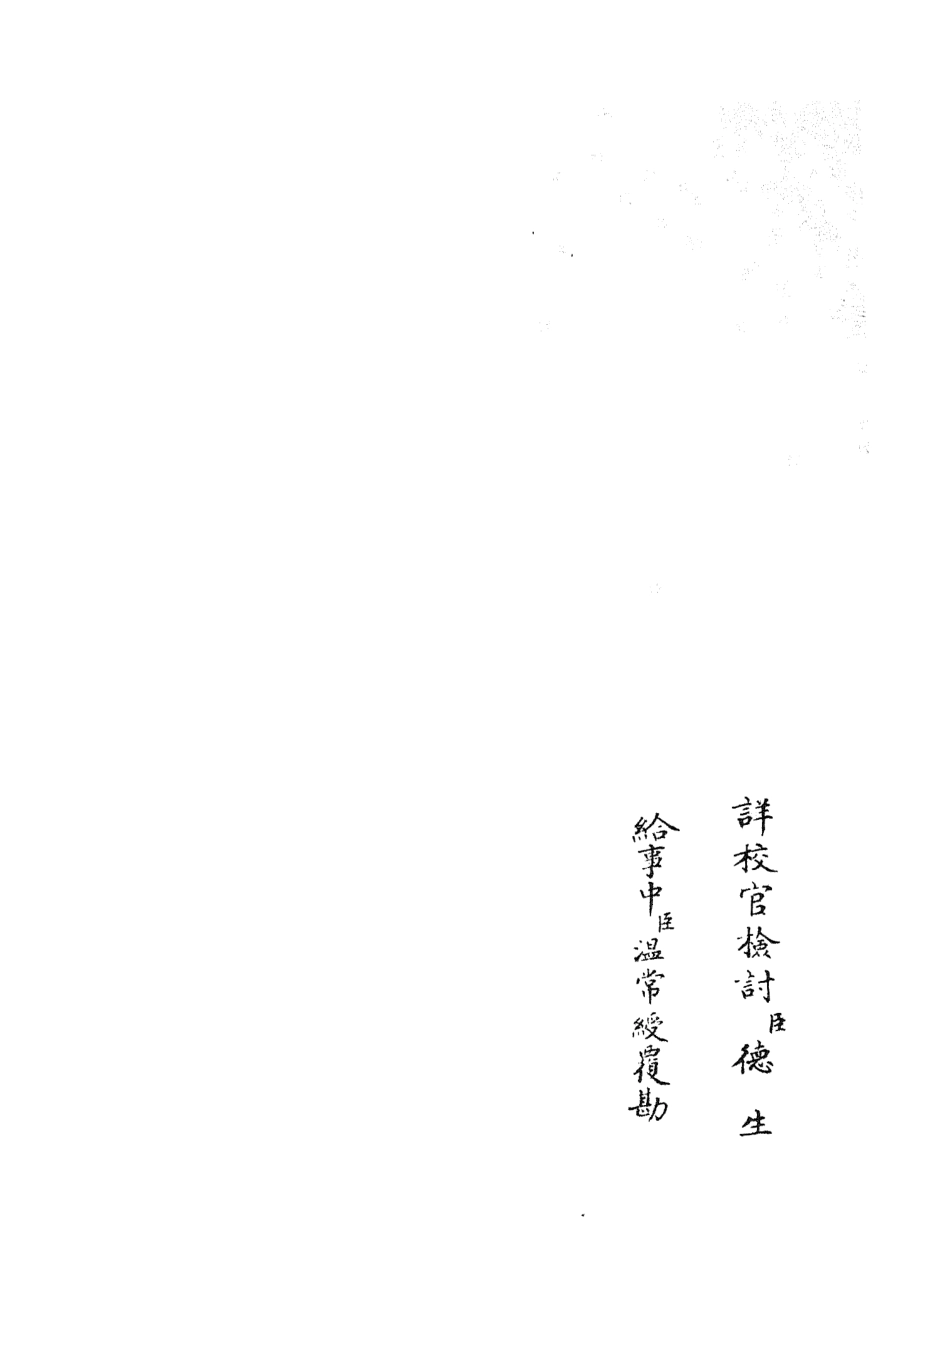 詳校官檢討臣德生
給事中臣温常綬覆勘